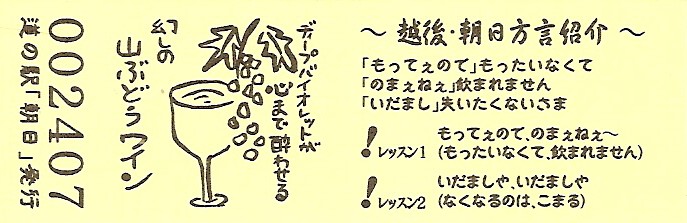 002407
道の駅「朝日」発行
幻しの
山ぶどうワイン
ディープバイオレットが
心まで酔わせる
～ 越後・朝日方言紹介 ～
「もってぇので」もったいなくて
「のまぇねぇ」飲まれません
「いだまし」失いたくないさま
！レッスン1 もってぇので、のまぇねぇ～
(もったいなくて、飲まれません)
！レッスン2 いだましや、いだましや
(なくなるのは、こまる)